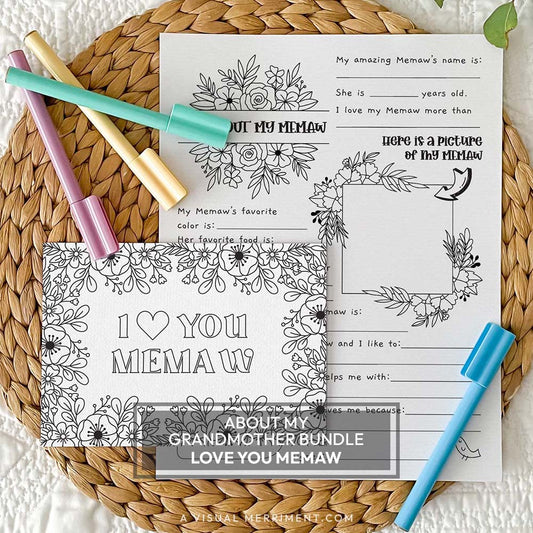 My amazing Memaw's name is:
She is years old.
I love my Memaw more than
OUT MY MEMAW
HERE IS A PICTURE
OF MY MEMAW
My Memaw's favorite
color is:
Her favorite food is:
aw is:
w and I like to:
elps me with:
ves me because:
I ♡ YOU
MEMAW
ABOUT MY
GRANDMOTHER BUNDLE
LOVE YOU MEMAW
A VISUAL MERRIMENT.COM